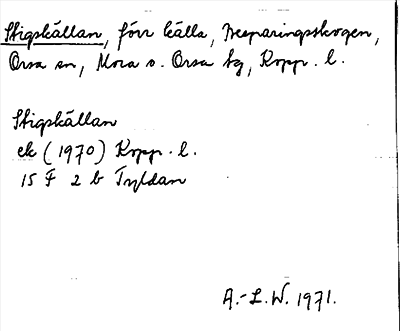 Stigskällan, förr källa, Besparingsskogen,
Orsa sn, Mora o. Orsa tg, Kopp. l.
Stigskällan
ek (1970) Kopp. l.
15 F 2 b Fryldan
A.-L.W. 1971.